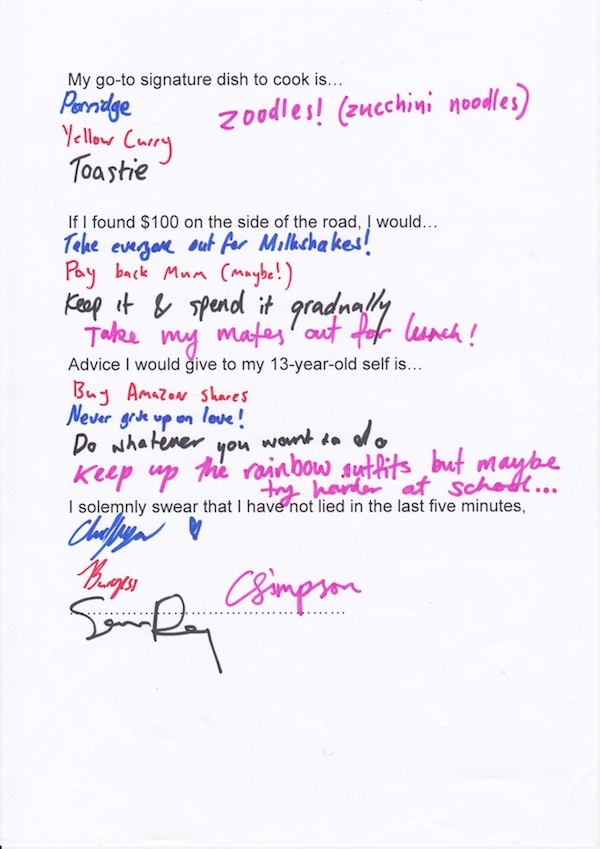 My go-to signature dish to cook is…
Porridge
zoodles! (zucchini noodles)
Yellow Curry
Toastie
If I found $100 on the side of the road, I would…
Take everyone out for Milkshakes!
Pay back Mum (maybe!)
Keep it & spend it gradually
Take my mates out for lunch!
Advice I would give to my 13-year-old self is…
Buy Amazon shares
Never give up on love!
Do whatever you want to do
Keep up the rainbow outfits but maybe
try harder at school...
I solemnly swear that I have not lied in the last five minutes,
Burgess
CSimpson